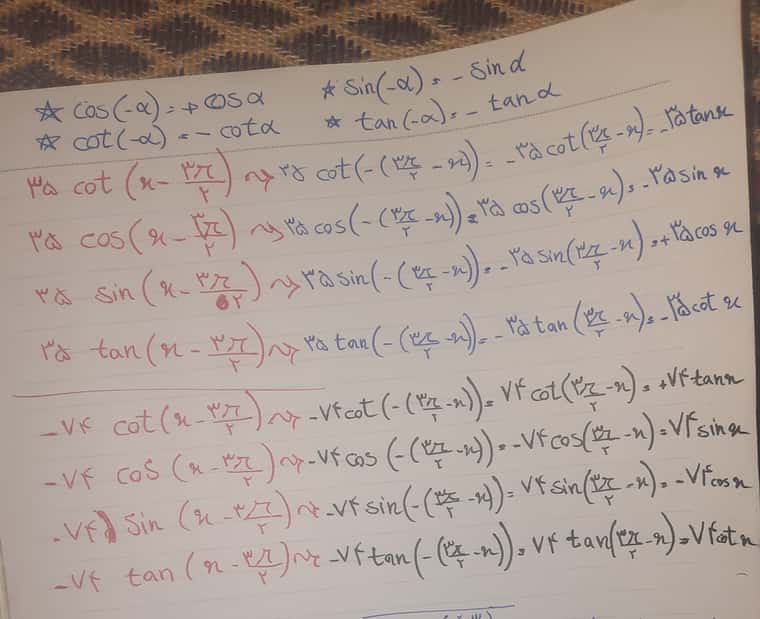 ☆ cos(-α) = + cosα * sin(-α) = - sinα
☆ cot(-α) = - cotα * tan(-α) = - tanα
۳۵ cot(x - ۳π/۲) ⇝ ۳۵ cot(-(۳π/۲ - x)) = - ۳۵ cot(۳π/۲ - x) = - ۳۵ tanx
۳۵ cos(x - ۳π/۲) ⇝ ۳۵ cos(-(۳π/۲ - x)) = ۳۵ cos(۳π/۲ - x) = - ۳۵ sin x
۳۵ sin(x - ۳π/۲) ⇝ ۳۵ sin(-(۳π/۲ - x)) = - ۳۵ sin(۳π/۲ - x) = + ۳۵ cos x
۳۵ tan(x - ۳π/۲) ⇝ ۳۵ tan(-(۳π/۲ - x)) = - ۳۵ tan(۳π/۲ - x) = - ۳۵ cot x
-۷۴ cot(x - ۳π/۲) ⇝ -۷۴ cot(-(۳π/۲ - x)) = ۷۴ cot(۳π/۲ - x) = +۷۴ tanx
-۷۴ cos(x - ۳π/۲) ⇝ -۷۴ cos(-(۳π/۲ - x)) = -۷۴ cos(۳π/۲ - x) = ۷۴ sinx
-۷۴ sin(x - ۳π/۲) ⇝ -۷۴ sin(-(۳π/۲ - x)) = ۷۴ sin(۳π/۲ - x) = -۷۴ cos x
-۷۴ tan(x - ۳π/۲) ⇝ -۷۴ tan(-(۳π/۲ - x)) = ۷۴ tan(۳π/۲ - x) = ۷۴ cot x